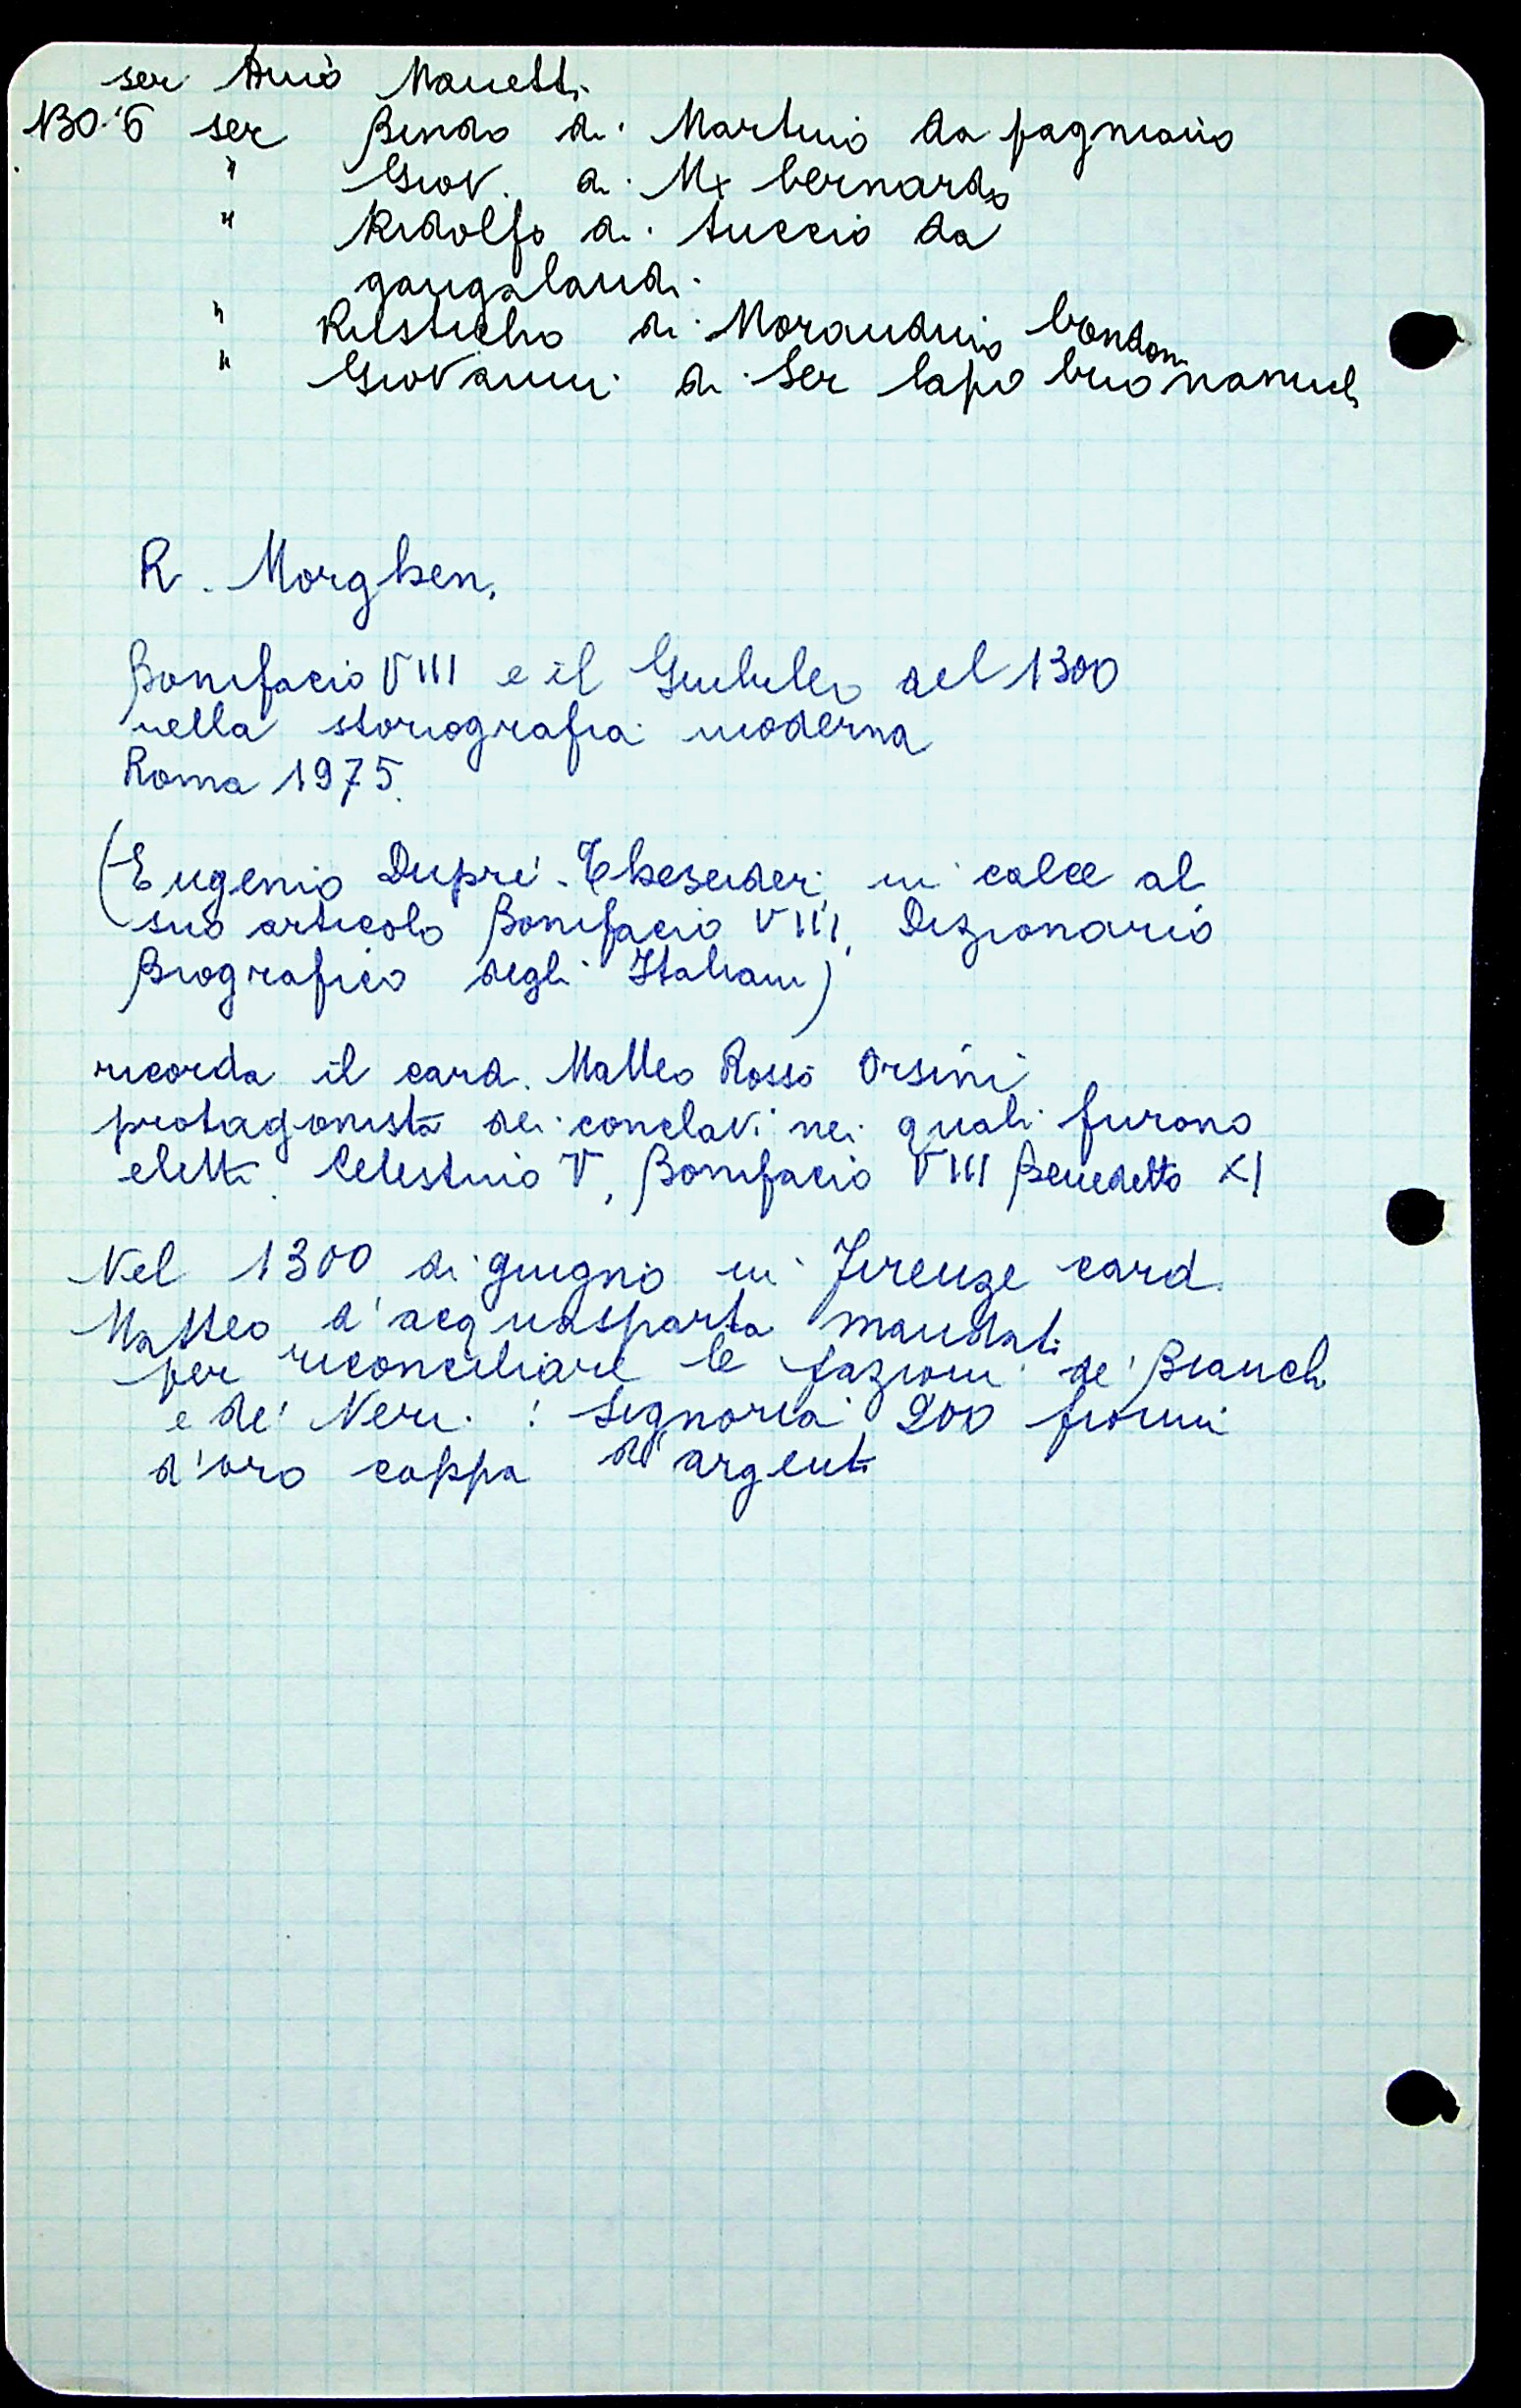 ser Arrio Manetti
1306 ser Bindo di Martino da pagniano
" Giov. di Mx bernardo
" Ridolfo di tuccio da
gangalandi
" Rusticho di Morandino bondoni
" Giovanni di Ser lapo buonamichi
R. Morghen,
Bonifacio VIII e il Giubileo del 1300
nella storiografia moderna
Roma 1975.
(Eugenio Dupré-Theseider, in calce al
suo articolo Bonifacio VIII, Dizionario
Biografico degli Italiani)
ricorda il card. Matteo Rosso Orsini
protagonista dei conclavi nei quali furono
eletti Celestino V, Bonifacio VIII Benedetto XI
Nel 1300 di giugno in Firenze card.
Matteo d'acquasparta mandati
per riconciliare le fazioni de' Bianchi
e de' Neri. : Signoria 200 fiorini
d'oro coppa d'argenti